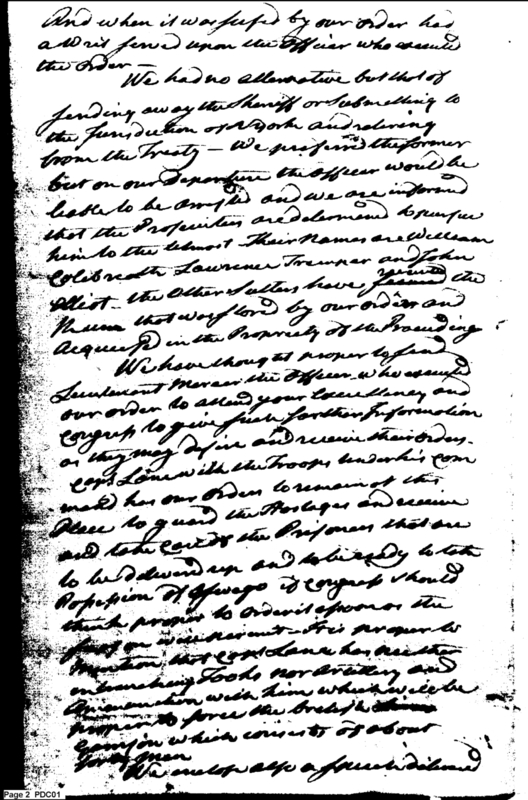 And when it was seized by our order had
a Writ served upon the Officer who executed
the order —
We had no alternative but that of
sending away the Sheriff or Submitting to
the Jurisdiction of N York and retiring
from the Treaty — We preferred the former
but on our Departure the Officer would be
liable to be arrested and we are informed
that the Proprietors are determined to pursue
him to the utmost. Their Names are William
Colbreath Lawrence Tremper and John
Elliot — the Other Sutlers have received the
Rum that was stored by our orders and
Acquiesced in the Propriety of the Proceeding
We have thought proper to send
Lieutenant Mercer the Officer, who executed
our order to attend your Excellency and
Congress to give such farther Information
as they may desire and receive their orders.
Capt Lane with the Troops under his com
mand has our orders to remain at this
Place to guard the Hostages and receive
and take care of the Prisoners that are
to be delivered up and to be ready to take
Possession of Oswego if Congress should
think proper to order it as soon as the
season will permit — It is proper to
mention that Capt Lane has neither
entrenching Tools nor Artillery and
Ammunition with him which will be
proper to force the British
Garrison which consists of about
forty Men
We enclose also a speech delivered
Page 2 PDC01